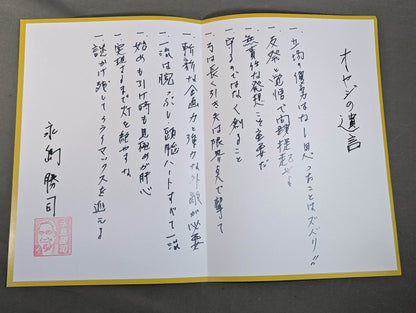 オヤジの遺言
一、立場の優劣はなし思ったことはズバリ!!
一、反発と覚悟で問題提起せよ
一、無責任な発想こそ重要だ
一、守るのではなく創ること
一、弓は長く引き矢は限界点で撃て
一、斬新な企画力と強力な外敵が必要
一、一流は腕っぷし頭脳ハートすべて一流
一、始めも引け時も見極めが肝心
一、実現するまで灯を絶やすな
一、謎かけ残してクライマックスを迎えよ
永島勝司